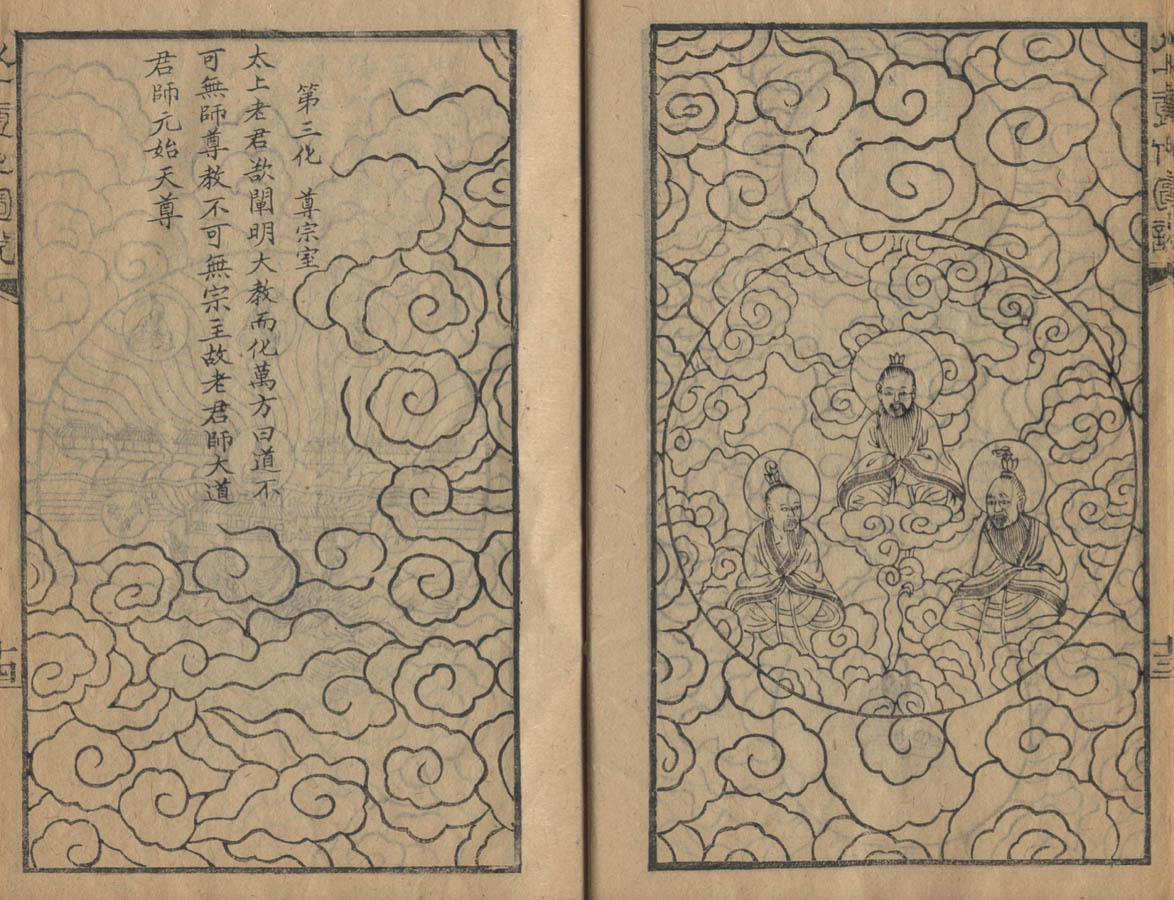 第三化　尊宗室
太上老君欲闡明大教而化萬方曰道不
可無師尊教不可無宗主故老君師大道
君師元始天尊
十四